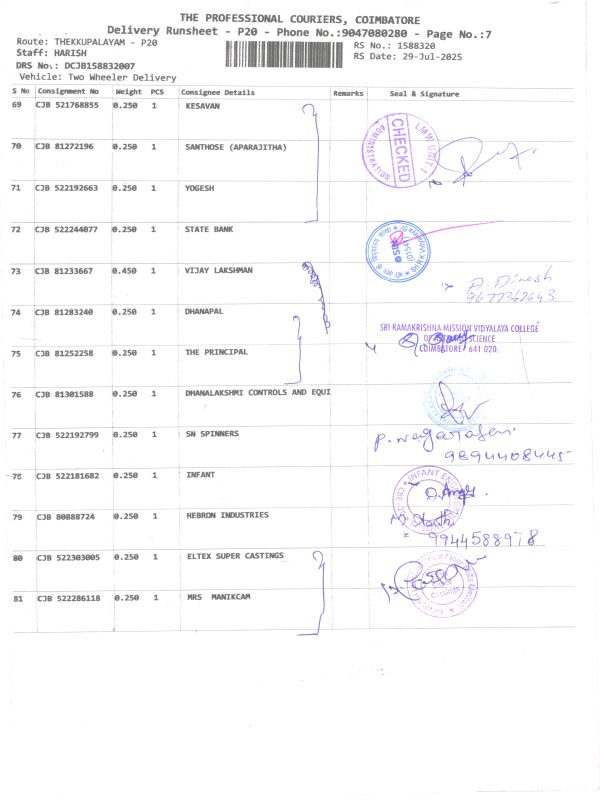 THE PROFESSIONAL COURIERS, COIMBATORE
Delivery Runsheet - P20 - Phone No.:9047080280 - Page No.:7
Route: THEKKUPALAYAM - P20
RS No.: 1588320
Staff: HARISH
RS Date: 29-Jul-2025
DRS No.: DCJB158832007
Vehicle: Two Wheeler Delivery
S No Consignment No Weight PCS Consignee Details Remarks Seal & Signature
69 CJB 521768855 0.250 1 KESAVAN
LMW UNIT-1
CHECKED
ADMINISTRATION
70 CJB 81272196 0.250 1 SANTHOSE (APARAJITHA)
71 CJB 522192663 0.250 1 YOGESH
72 CJB 522244077 0.250 1 STATE BANK
73 CJB 81233667 0.450 1 VIJAY LAKSHMAN
A. Dinesh
9677362643
74 CJB 81283240 0.250 1 DHANAPAL
SRI RAMAKRISHNA MISSION VIDYALAYA COLLEGE
SCIENCE
COIMBATORE - 641 020.
75 CJB 81252258 0.250 1 THE PRINCIPAL
76 CJB 81301588 0.250 1 DHANALAKSHMI CONTROLS AND EQUI
77 CJB 522192799 0.250 1 SN SPINNERS
P. Nagarajan
9894408445
78 CJB 522181682 0.250 1 INFANT
INFANT
79 CJB 80888724 0.250 1 HEBRON INDUSTRIES
9944588978
80 CJB 522303005 0.250 1 ELTEX SUPER CASTINGS
Castings
81 CJB 522286118 0.250 1 MRS MANIKCAM